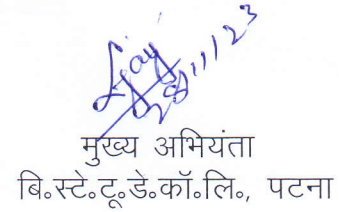 28/11/23
मुख्य अभियंता
बि॰स्टे॰टू॰डे॰कॉ॰लि॰, पटना